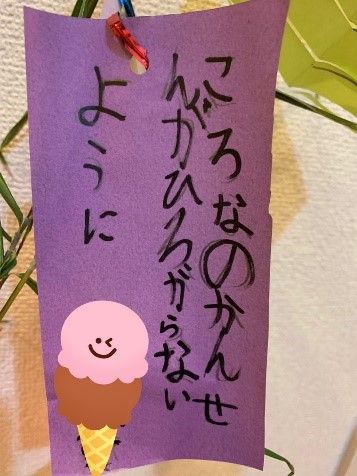 ころなのかんせ
んがひろがらない
ように